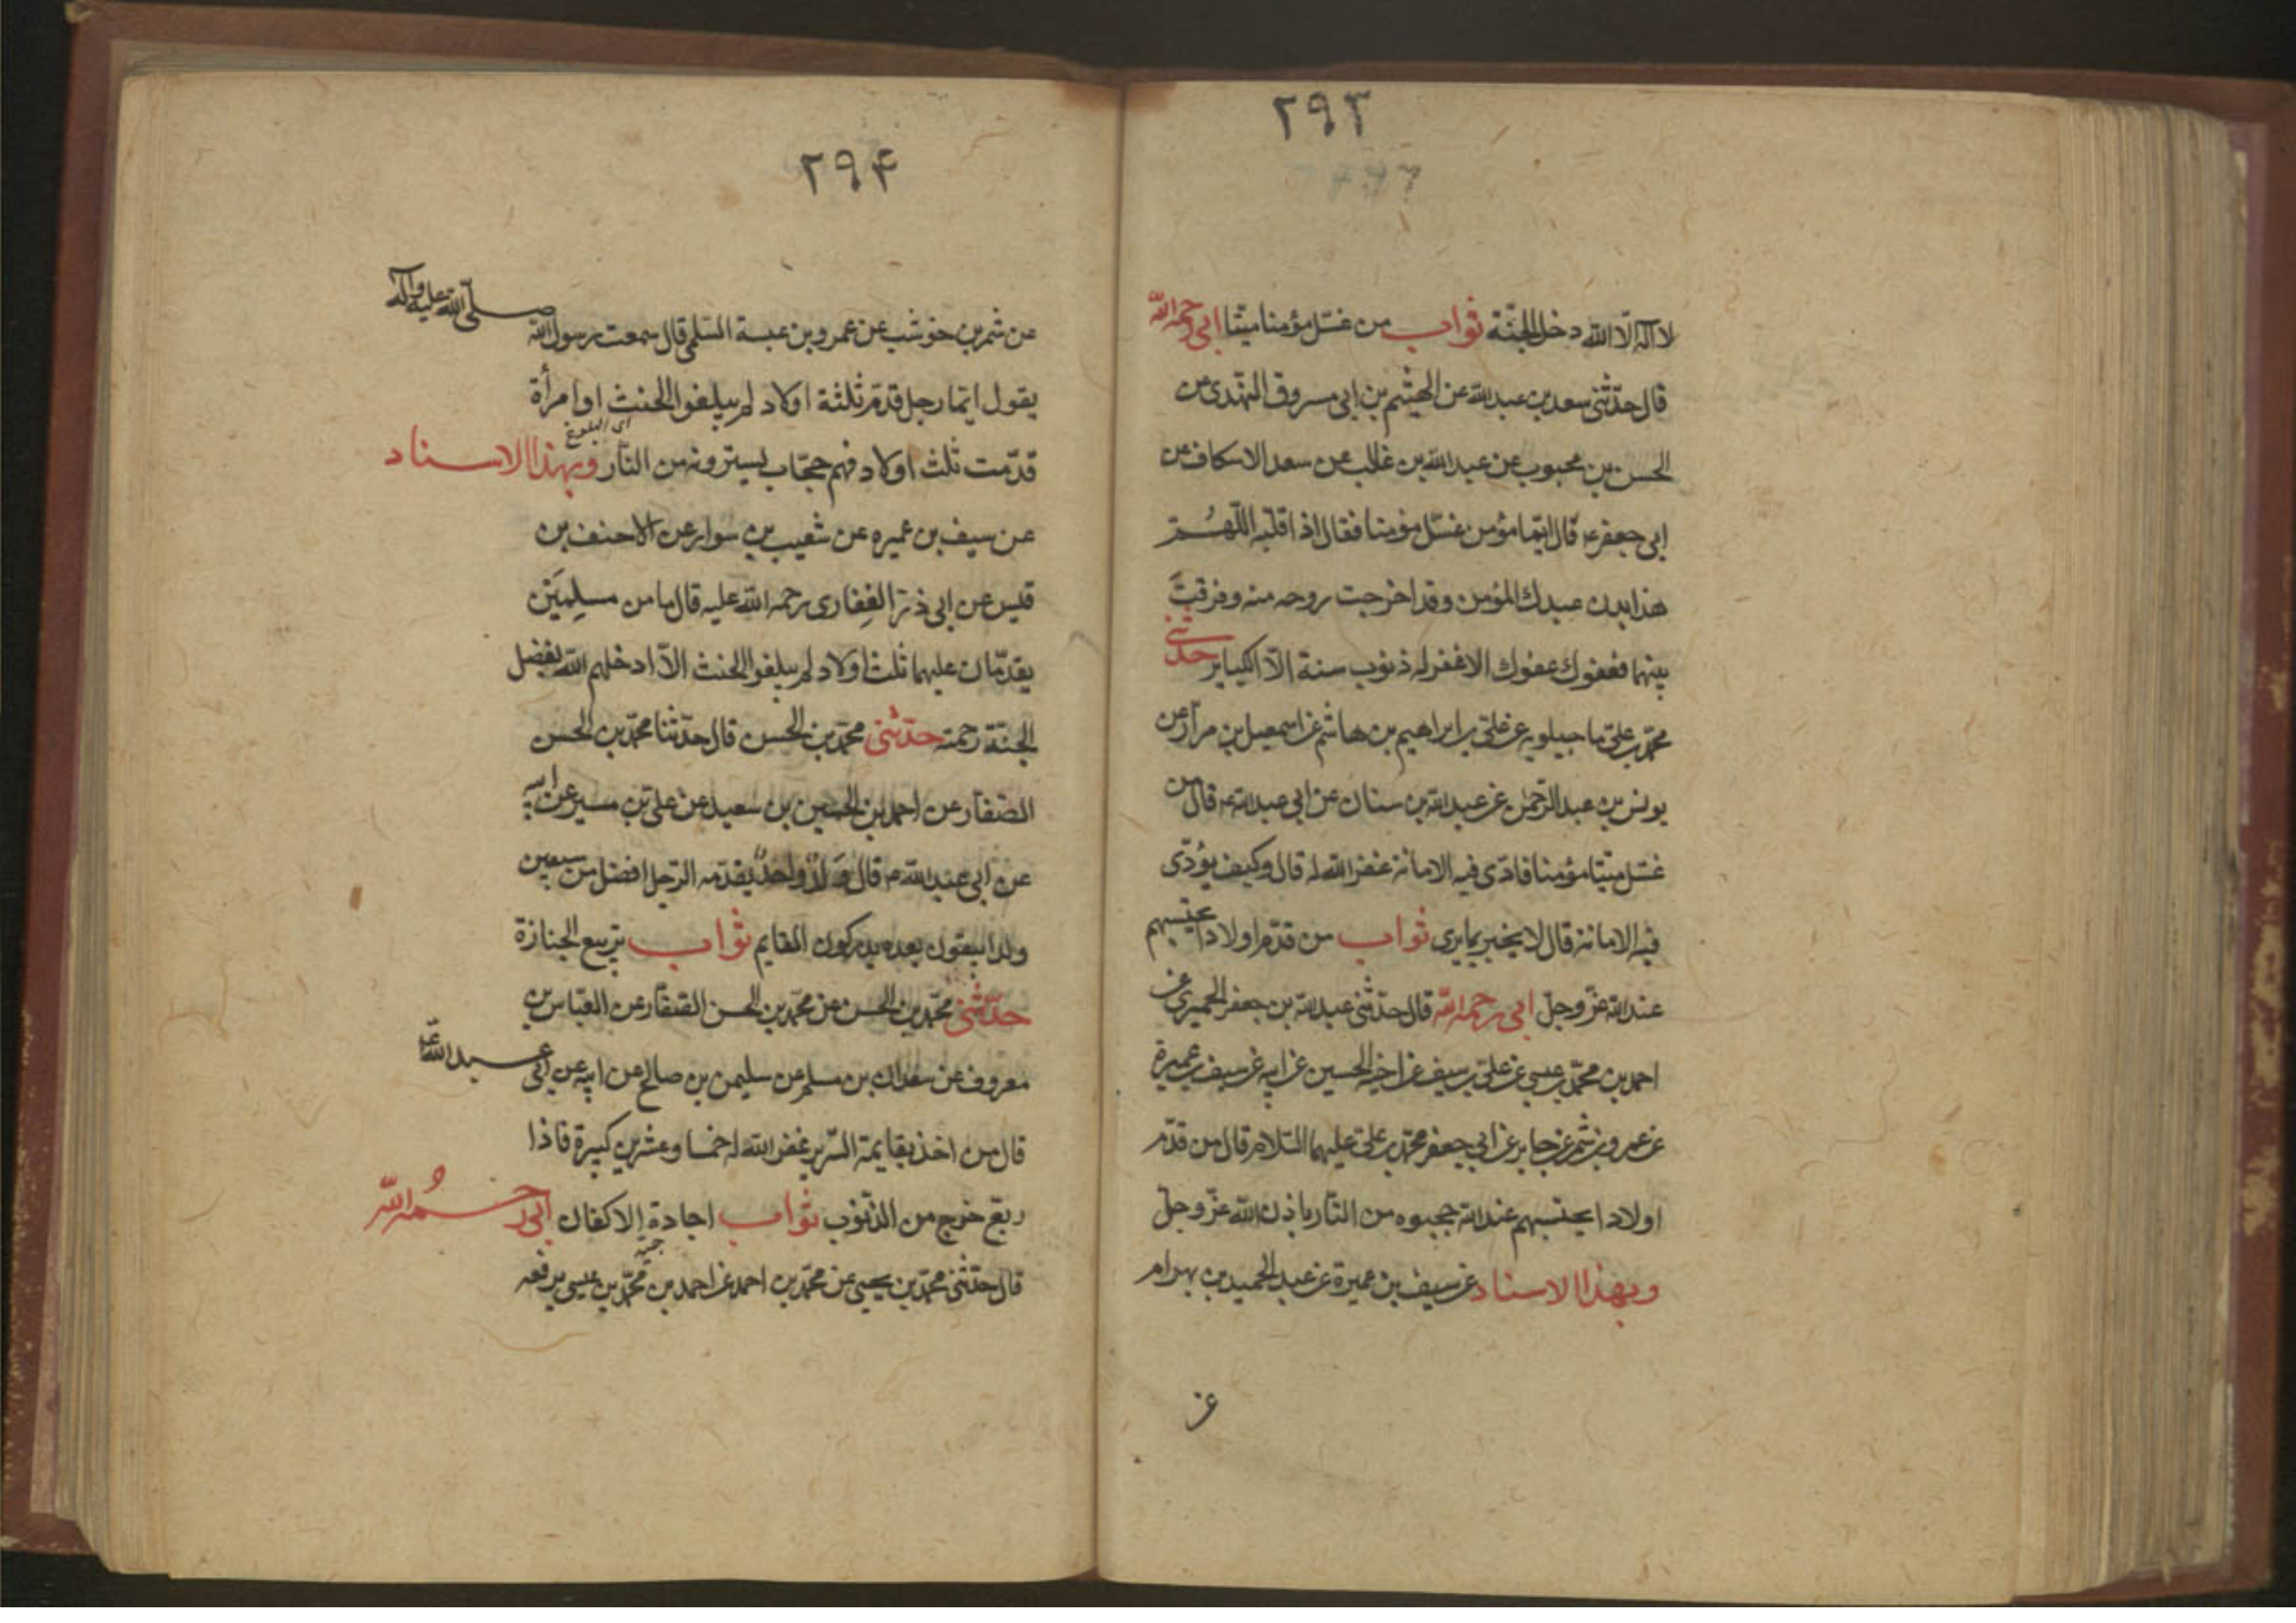 ٢٩٣
لا اله الّا الله دخل الجنّة ثواب من غسّل مؤمنا ميتا ابى رحمه الله
قال حدّثنى سعد بن عبد الله عن الهيثم بن ابى مسروق النهدى عن
الحسن بن محبوب عن عبد الله بن غالب عن سعد الاسكاف عن
ابى جعفر ع قال ايّما مؤمن غسّل مؤمنا فقال اذا قلّبه اللّهُمّ
هذا بدن عبدك المؤمن وقد اخرجت روحه منه وفرقتَ
بينهما فعفوك عفوك الا غفر له ذنوب سنة الّا الكباير حدّثنى
محمّد بن علىّ ماجيلويه عن علىّ بن ابراهيم بن هاشم عن اسمعيل بن مرّار عن
يونس بن عبد الرّحمن عن عبد الله بن سنان عن ابى عبد الله ع قال من
غسّل ميّتا مؤمنا فادّى فيه الامانة غفر الله له قال وكيف يؤدّى
فيه الامانة قال لا يخبر بما يرى ثواب من قدّم اولادا يحتسبهم
عند الله عزّ وجلّ ابى رحمه الله قال حدّثنى عبد الله بن جعفر الحميرى عن
احمد بن محمّد بن عيسى عن علىّ بن سيف عن اخيه الحسين عن ابيه عن سيف بن عميرة
عن عمرو بن شمر عن جابر عن ابى جعفر محمّد بن علىّ عليهما السّلام قال من قدّم
اولادا يحتسبهم عند الله حجبوه من النّار باذن الله عزّ وجلّ
وبهذا الاسناد عن سيف بن عميرة عن عبد الحميد بن بهرام
عن
٢٩۴
عن شمر بن حوشب عن عمرو بن عبسة السّلمى قال سمعت رسول الله صلّى الله عليه وآله
يقول ايّما رجل قدّم ثلثة اولاد لم يبلغوا الحنث او امرأة
اى البلوغ
قدّمت ثلث اولاد فهم حجّاب يسترونه من النّار وبهذا الاسناد
عن سيف بن عميره عن شعيب بن سوار عن الاحنف بن
قيس عن ابى ذرّ الغِفارى رحمة الله عليه قال ما من مسلِمَيْن
يقدّمان عليهما ثلث اولاد لم يبلغوا الحنث الّا ادخلهم الله بفضل
الجنّة رحمته حدّثنى محمّد بن الحسن قال حدّثنا محمّد بن الحسن
الصّفّار عن احمد بن الحسين بن سعيد عن علىّ بن مسير عن ابيه
عن ابى عبد الله ع قال وَلَدٌ واحدٌ يقدّمه الرّجل افضل من سبعين
ولدا يبقون بعده يدركون القايم ثواب تربيع الجنازة
حدّثنى محمّد بن الحسن عن محمّد بن الحسن الصّفّار عن العبّاس بن
معروف عن سعدان بن مسلم عن سليمن بن صالح عن ابيه عن ابى عبد الله ع
قال من اخذ بقايمة السّرير غفر الله له خمسا وعشرين كبيرة فاذا
ربّع خرج من الذّنوب ثواب اجادة الاكفان ابى رحمهُ الله
قال حدّثنى محمّد بن يحيى عن محمّد بن احمد عن احمد بن محمّد بن عيسى يرفعه